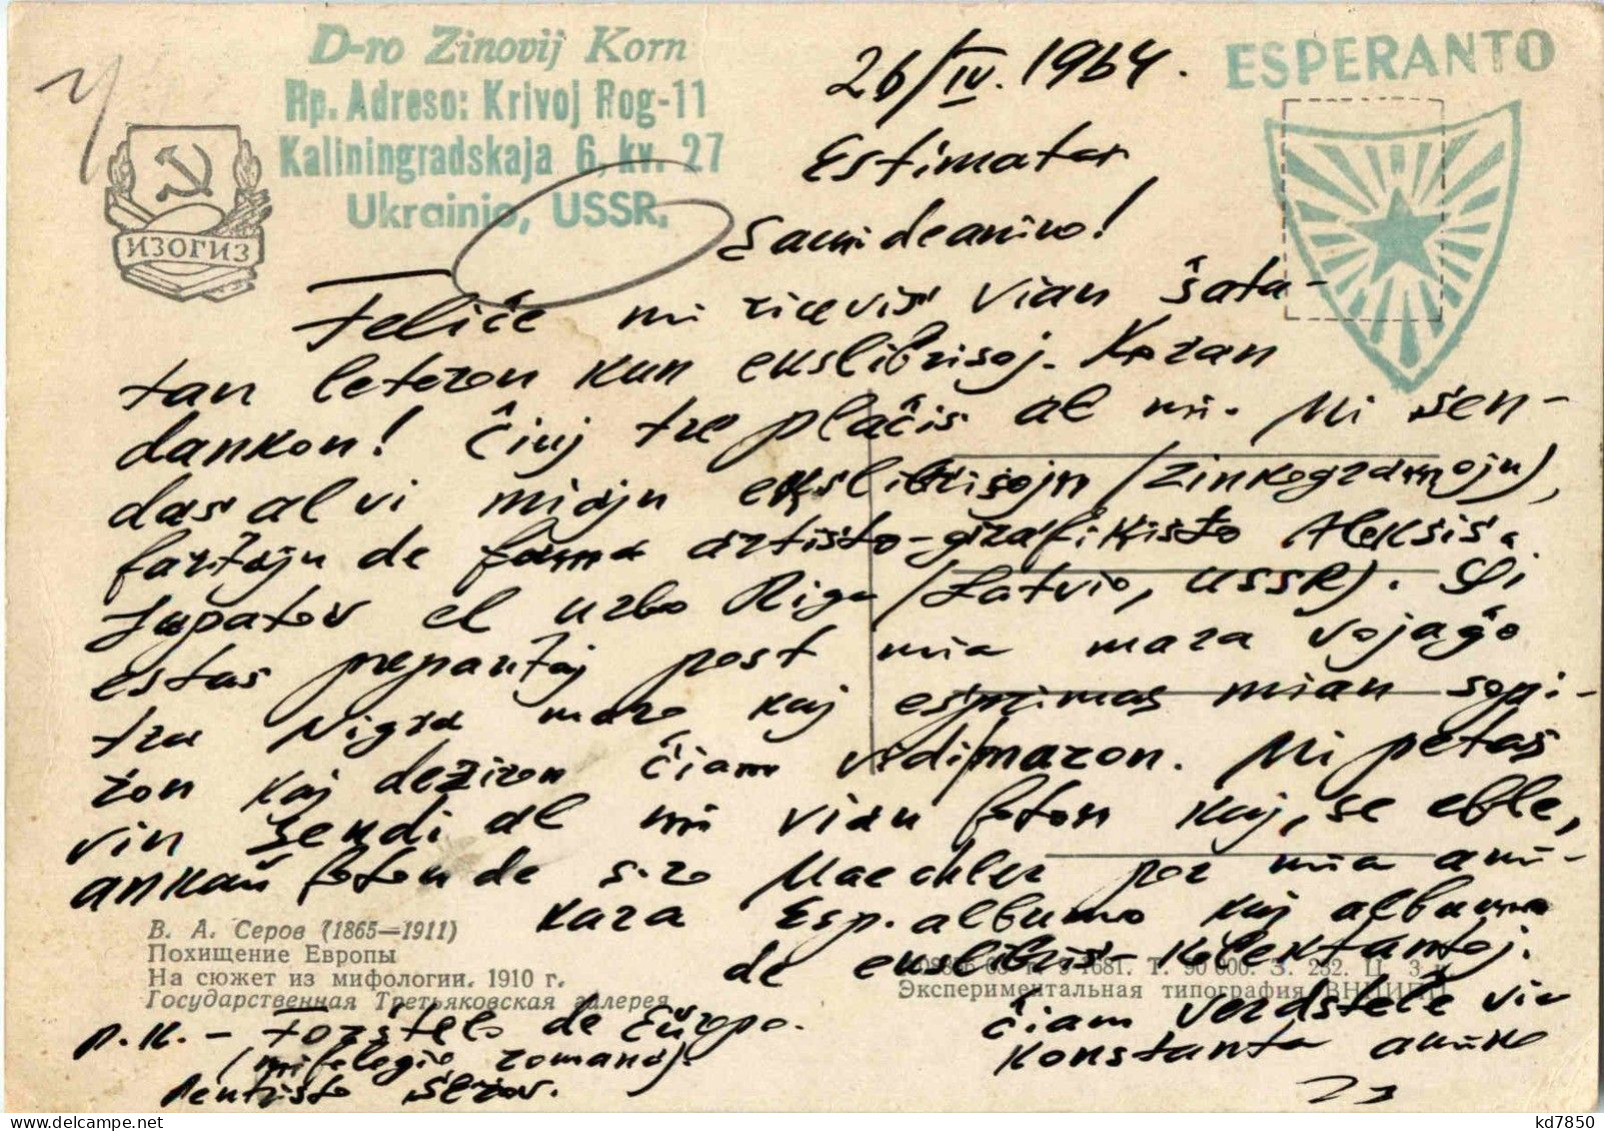 D-ro Zinovij Korn
Rp. Adreso: Krivoj Rog-11
Kaliningradskaja 6, kv. 27
Ukrainio, USSR.
ESPERANTO
ИЗОГИЗ
26/IV. 1964.
Estimata
Samideanino!
Feliĉe mi ricevis vian ŝata-
tan leteron kun ekslibrisoj. Koran
dankon! Ĉiuj tre plaĉis al mi. Mi sen-
das al vi miajn ekslibrisojn (zinkogramojn),
faritajn de fama artisto-grafikisto Aleksis.
Jupatov el urbo Riga (Latvio, USSR). Ili
estas preparitaj post mia mara vojaĝo
tra Nigra maro kaj esprimas mian sopi-
ron kaj deziron ĉiam vidi maron. Mi petas
vin sendi al mi vian foton kaj, se eble,
ankaŭ foton de s-ro Maechler por mia ami-
kara Esp. albumo kaj albumo
de ekslibris-kolektantoj.
Ĉiam verdstele via
konstanta amiko
В. А. Серов (1865—1911)
Похищение Европы
На сюжет из мифологии. 1910 г.
Государственная Третьяковская галерея
1681. Т. 90 000. З. 232. Ц. 3 к.
Экспериментальная типография ВНИИПП
P.K. - Forŝtelo de Eŭropo.
(mitologio romana).
Pentristo Serov.
kd7850